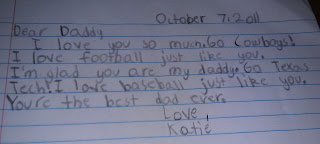 October 7, 2011
Dear Daddy
I love you so much. Go Cowboys!
I love football just like you.
I'm glad you are my daddy. Go Texas
Tech! I love baseball just like you.
You're the best dad ever.
Love,
Katie